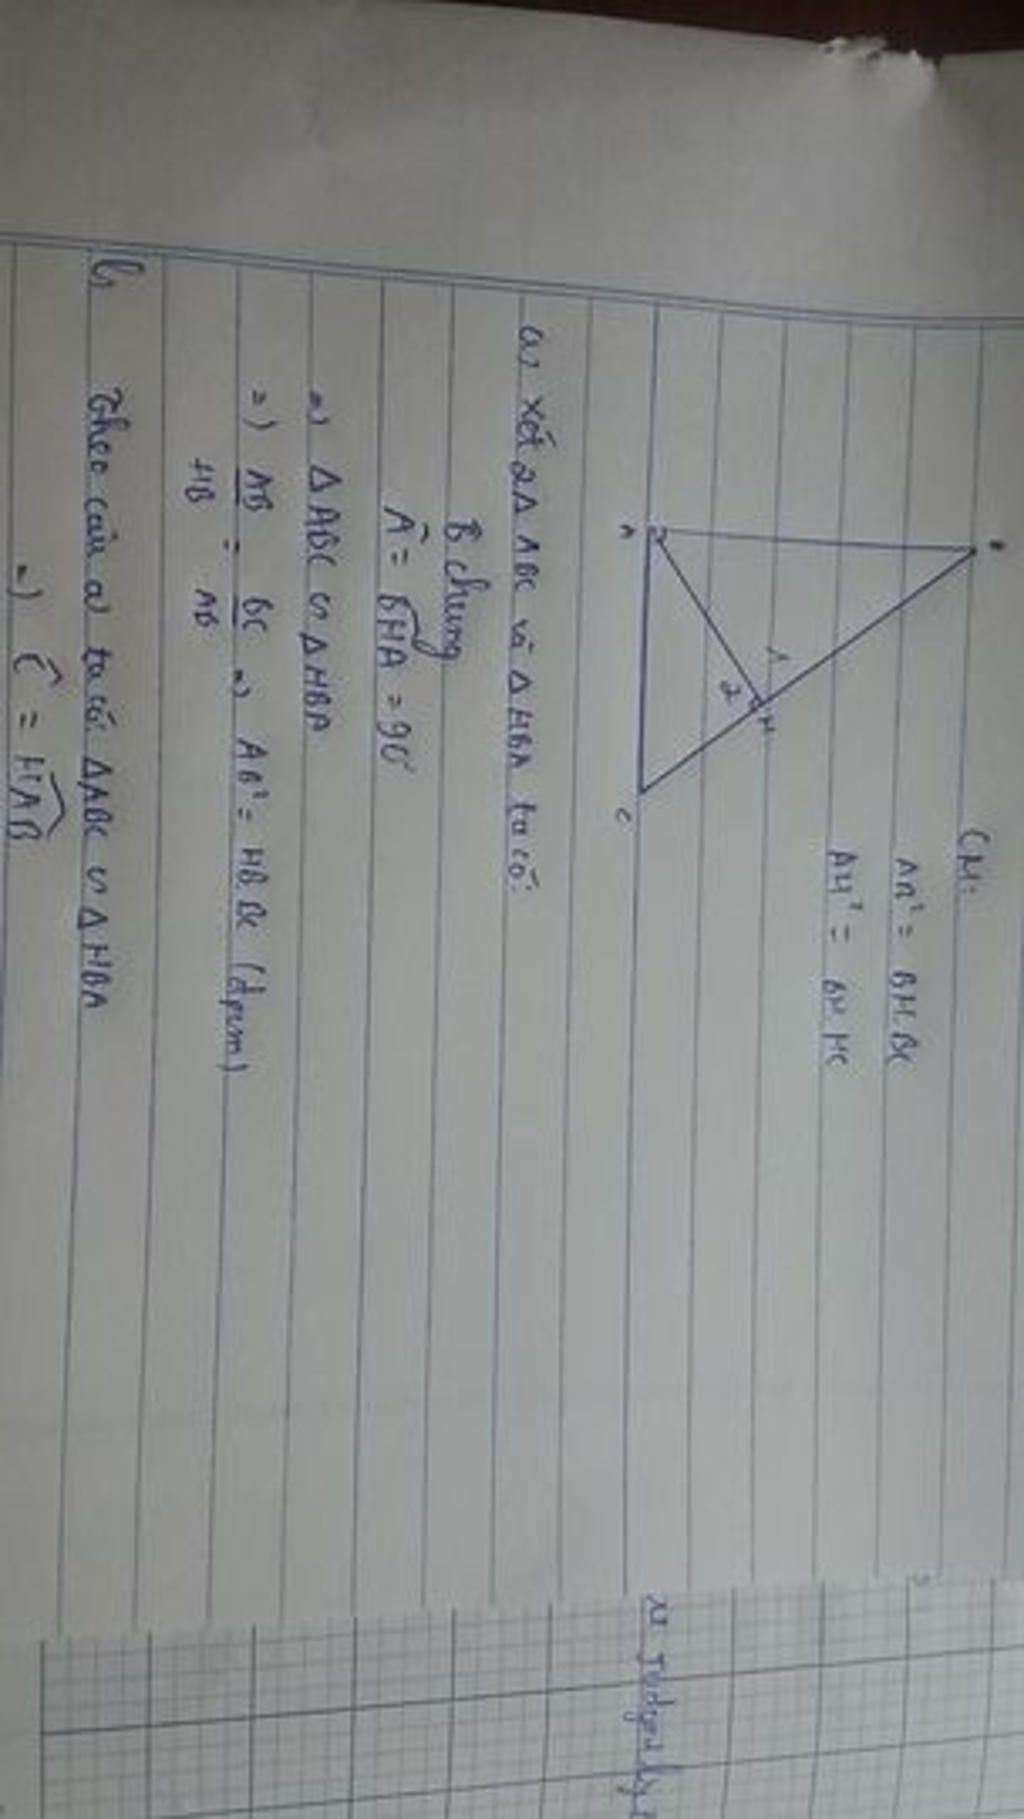 CM:
AB² = BH.BC
AH² = BH.HC
B
A
C
H
1
2
a, xét 2Δ ABC và Δ HBA ta có:
B̂ chung
Â = BHA = 90°
=) Δ ABC ∽ Δ HBA
=) AB/HB = BC/AB =) AB² = HB.BC (đpcm)
b, Theo câu a) ta có: ΔABC ∽ Δ HBA
=) Ĉ = HAB